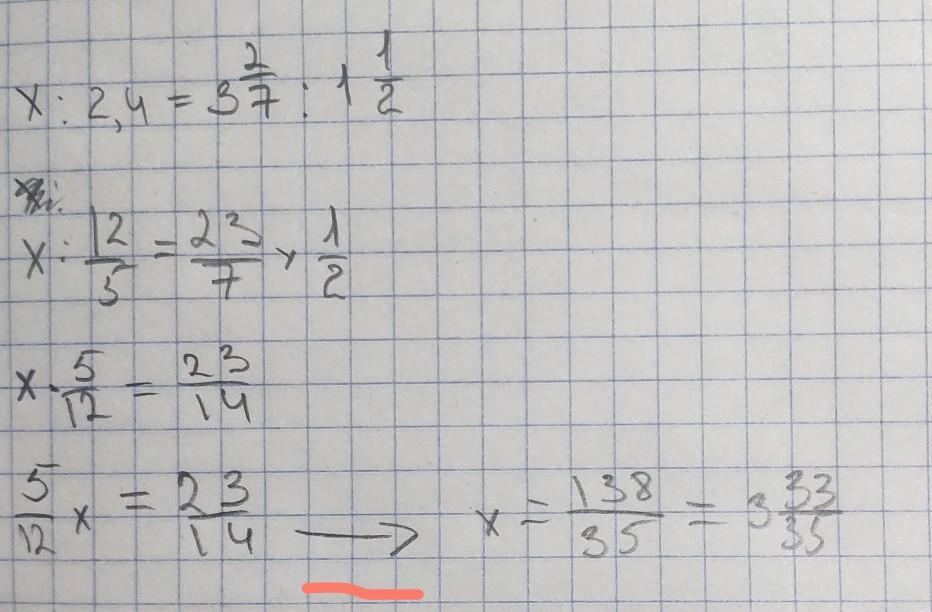 x : 2,4 = 3 2/7 : 1 1/2
x : 12/5 = 23/7 × 1/2
x · 5/12 = 23/14
5/12 x = 23/14 → x = 138/35 = 3 33/35